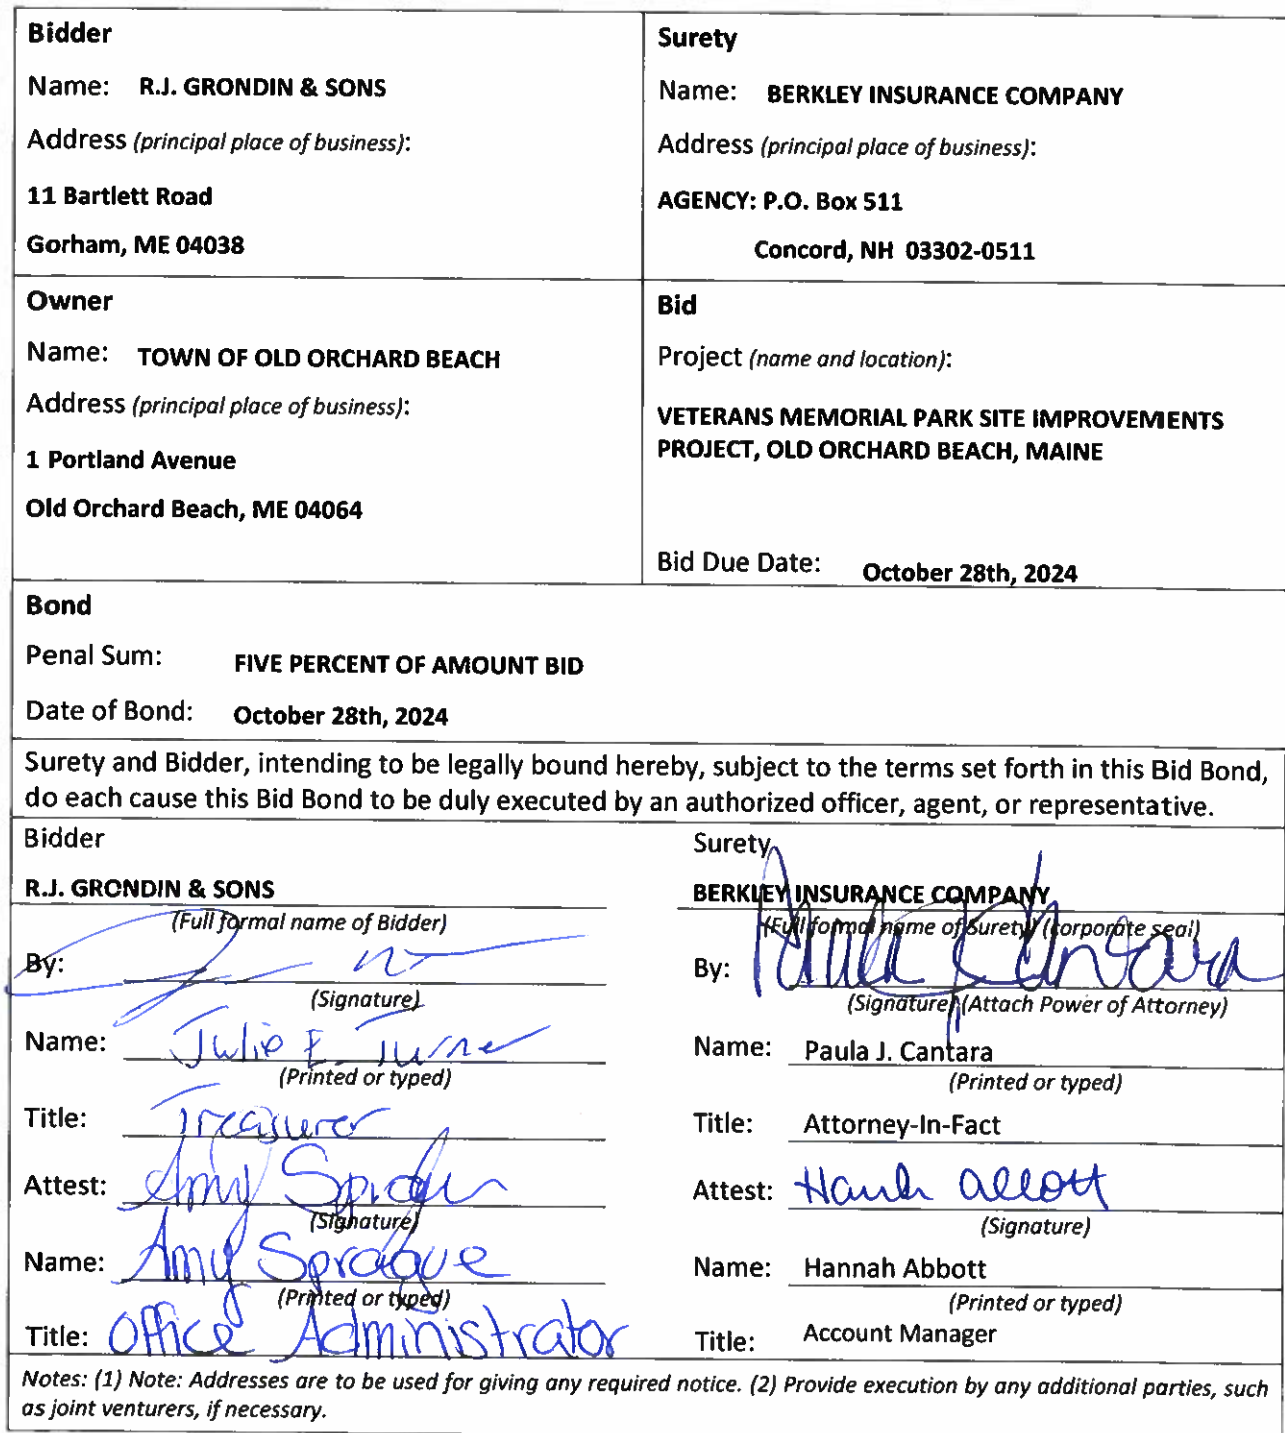 Bidder
Name: R.J. GRONDIN & SONS
Address (principal place of business):
11 Bartlett Road
Gorham, ME 04038
Surety
Name: BERKLEY INSURANCE COMPANY
Address (principal place of business):
AGENCY: P.O. Box 511
Concord, NH 03302-0511
Owner
Name: TOWN OF OLD ORCHARD BEACH
Address (principal place of business):
1 Portland Avenue
Old Orchard Beach, ME 04064
Bid
Project (name and location):
VETERANS MEMORIAL PARK SITE IMPROVEMENTS
PROJECT, OLD ORCHARD BEACH, MAINE
Bid Due Date: October 28th, 2024
Bond
Penal Sum: FIVE PERCENT OF AMOUNT BID
Date of Bond: October 28th, 2024
Surety and Bidder, intending to be legally bound hereby, subject to the terms set forth in this Bid Bond,
do each cause this Bid Bond to be duly executed by an authorized officer, agent, or representative.
Bidder
R.J. GRONDIN & SONS
(Full formal name of Bidder)
By:
(Signature)
Name: Julie E. Turner
(Printed or typed)
Title: Treasurer
Attest: Amy Sprague
(Signature)
Name: Amy Sprague
(Printed or typed)
Title: Office Administrator
Surety
BERKLEY INSURANCE COMPANY
(Full formal name of Surety) (corporate seal)
By: Paula J Cantara
(Signature) (Attach Power of Attorney)
Name: Paula J. Cantara
(Printed or typed)
Title: Attorney-In-Fact
Attest: Hannah Abbott
(Signature)
Name: Hannah Abbott
(Printed or typed)
Title: Account Manager
Notes: (1) Note: Addresses are to be used for giving any required notice. (2) Provide execution by any additional parties, such
as joint venturers, if necessary.